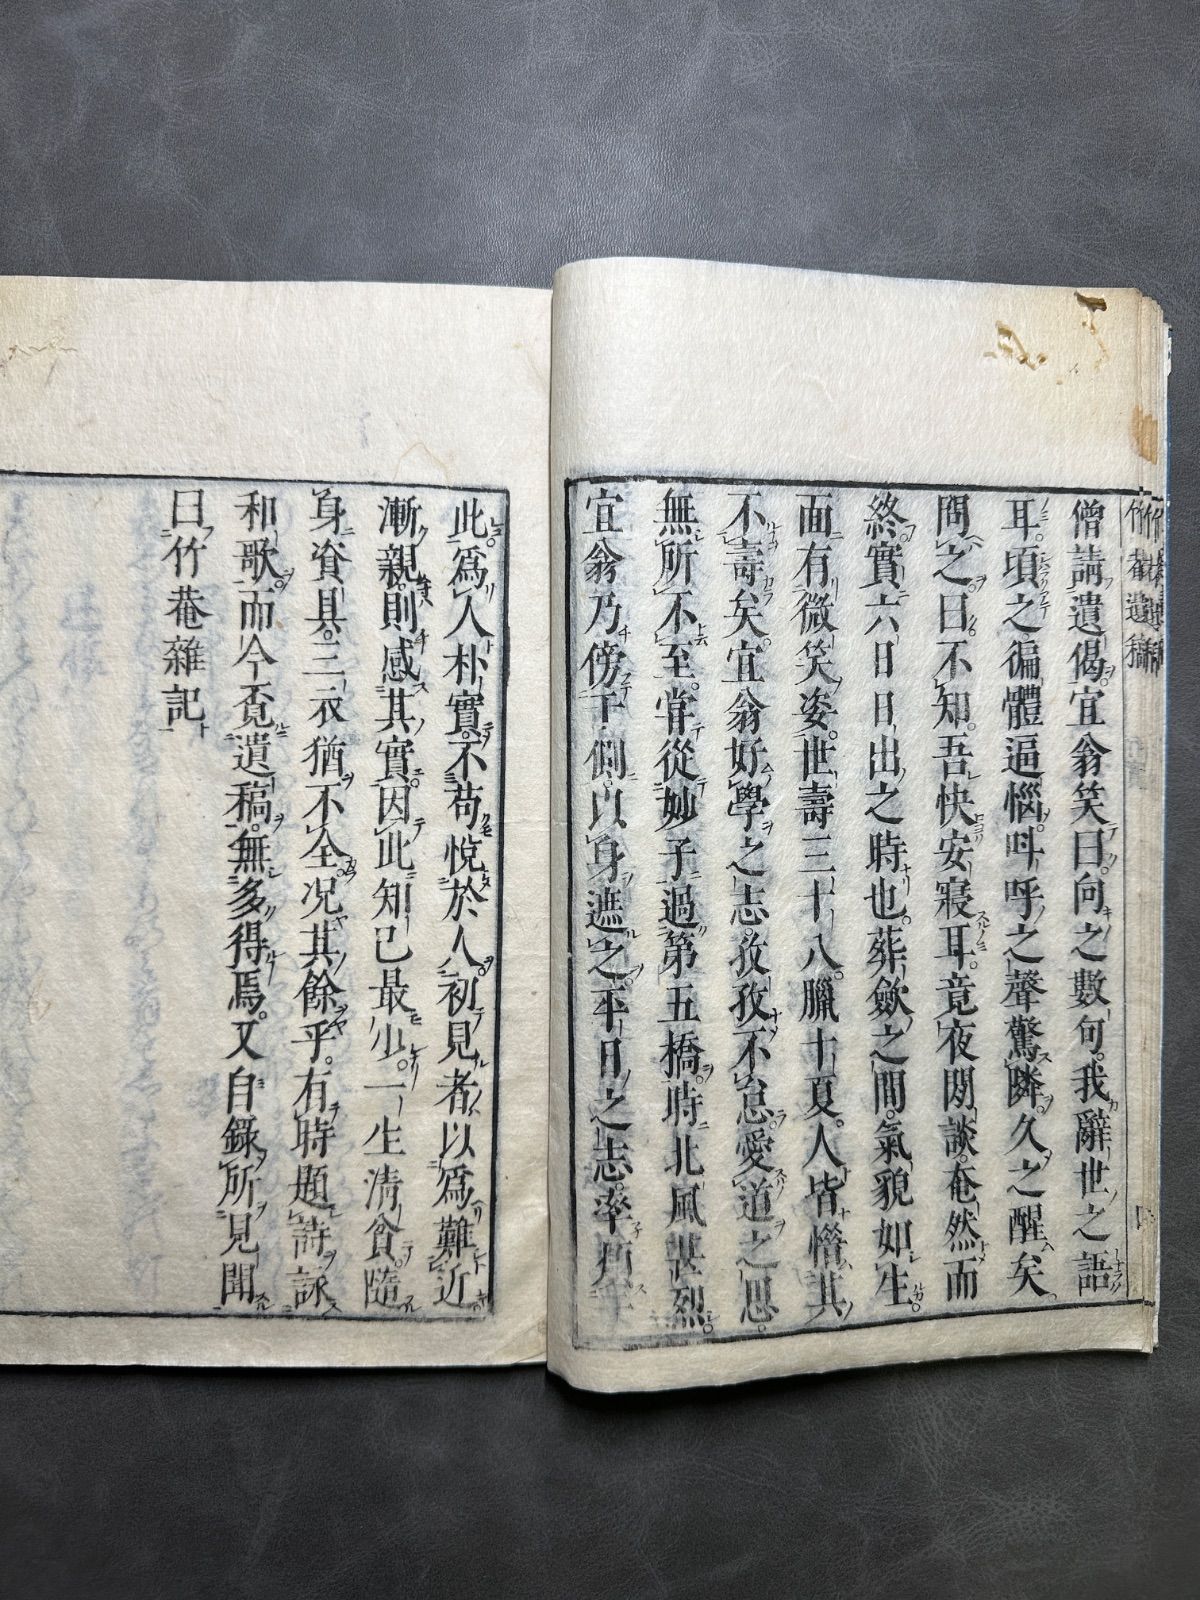 竹菴遺稿
僧請遺偈宜翁笑曰向之數句我辭世之語
耳頃之徧體逼惱呌呼之聲驚隣久之醒矣
問之曰不知吾快安寢耳竟夜閑談奄然而
終實六日日出之時也葬歛之間氣貌如生
面有微笑姿世壽三十八臘十夏人皆憯其
不壽矣宜翁好學之志孜孜不怠愛道之思
無所不至嘗從妙子過第五橋時北風甚烈
宜翁乃傍于側以身遮之平日之志率
此爲人朴實不苟悅於人初見者以爲難近
漸親則感其實因此知己最少一生清貧隨
身資具三衣猶不全况其餘乎有時題詩詠
和歌而今覔遺稿無多得焉又自錄所見聞
曰竹菴雜記